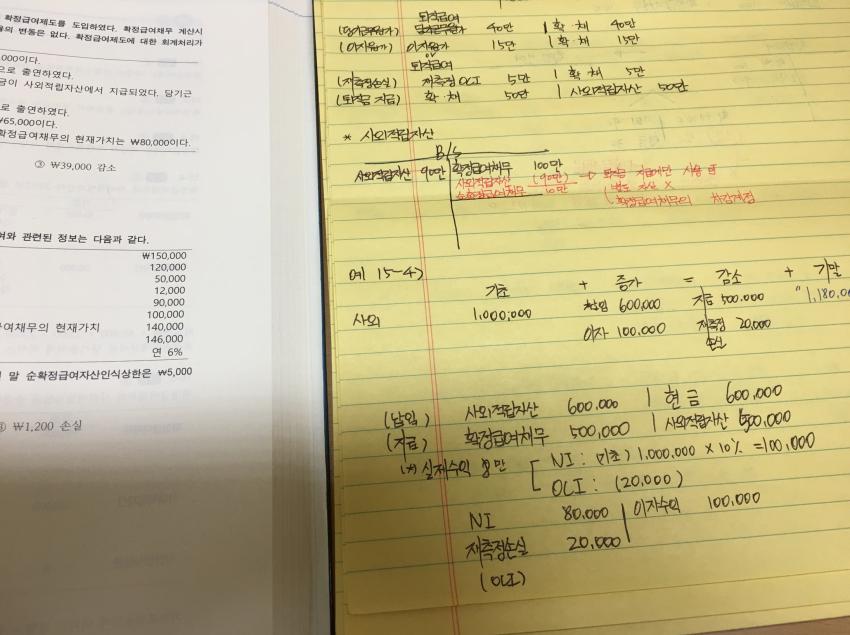 확정급여제도를 도입하였다. 확정급여채무 계산시
의 변동은 없다. 확정급여제도에 대한 회계처리가
000이다.
으로 출연하였다.
금이 사외적립자산에서 지급되었다. 당기근
로 출연하였다.
₩65,000이다.
확정급여채무의 현재가치는 ₩80,000이다.
③ ₩39,000 감소
여와 관련된 정보는 다음과 같다.
₩150,000
120,000
50,000
12,000
90,000
100,000
여채무의 현재가치 140,000
146,000
연 6%
말 순확정급여자산인식상한은 ₩5,000
③ ₩1,200 손실
퇴직급여
(당기근무원가) 40만 | 확·채 40만
(이자원가) 이자원가 15만 | 확·채 15만
퇴직급여
(재측정손실) 재측정 OCI 5만 | 확·채 5만
(퇴직금 지급) 확·채 50만 | 사외적립자산 50만
* 사외적립자산
B/S
사외적립자산 90만 확정급여채무 100만
사외적립자산 (90만) → 퇴직금 지급에만 사용
순확정급여채무 10만 (별도 자산 X
확정급여채무의 차감계정
예 15-4)
기초 + 증가 = 감소 + 기말
사외 1,000,000 600,000 지급 500,000
이자 100,000 재측정 20,000
손실
(납입) 사외적립자산 600,000 | 현금 600,000
(지급) 확정급여채무 500,000 | 사외적립자산 500,000
(*) 실제수익 8만 NI : (기초) 1,000,000 × 10% = 100,000
OCI : (20,000)
NI 80,000 | 이자수익 100,000
재측정손실 20,000
(OCI)